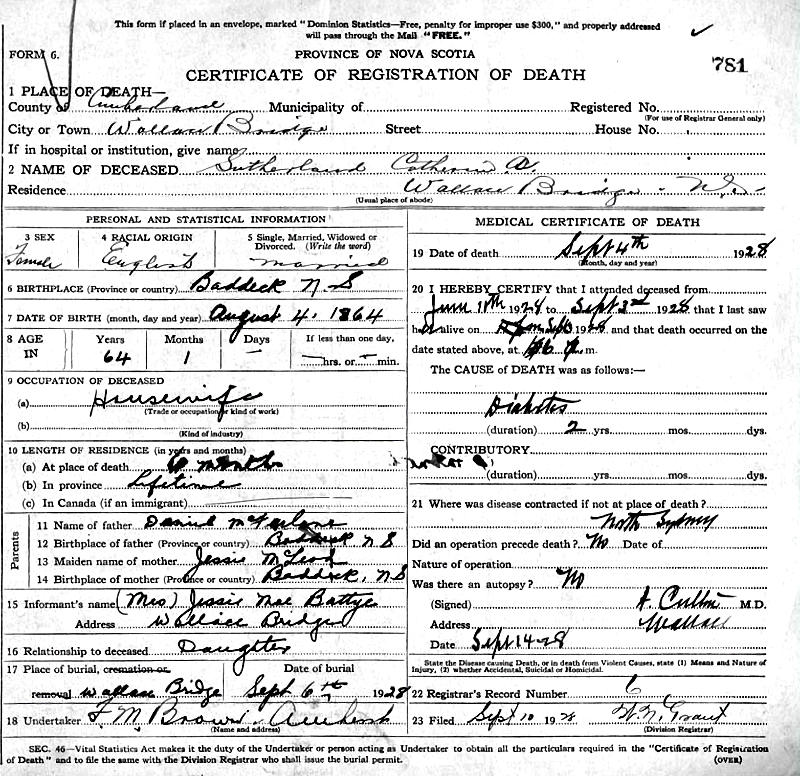 This form if placed in an envelope, marked "Dominion Statistics—Free, penalty for improper use $300," and properly addressed
will pass through the Mail "FREE."
FORM 6.
PROVINCE OF NOVA SCOTIA
781
CERTIFICATE OF REGISTRATION OF DEATH
1 PLACE OF DEATH—
County of Cumberland Municipality of Registered No.
(For use of Registrar General only)
City or Town Wallace Bridge Street House No.
If in hospital or institution, give name
2 NAME OF DECEASED Sutherland Catherine A.
Residence Wallace Bridge N.S.
(Usual place of abode)
PERSONAL AND STATISTICAL INFORMATION
3 SEX 4 RACIAL ORIGIN 5 Single, Married, Widowed or
Divorced. (Write the word)
Female English married
6 BIRTHPLACE (Province or country) Baddeck N.S
7 DATE OF BIRTH (month, day and year) August 4, 1864
8 AGE IN Years Months Days If less than one day,
64 1 — hrs. or min.
9 OCCUPATION OF DECEASED
(a) Housewife
(Trade or occupation or kind of work)
(b)
(Kind of industry)
10 LENGTH OF RESIDENCE (in years and months)
(a) At place of death months
(b) In province Lifetime
(c) In Canada (if an immigrant)
Parents
11 Name of father Daniel McFarlane
12 Birthplace of father (Province or country) Baddeck N S
13 Maiden name of mother Jessie McLeod
14 Birthplace of mother (Province or country) Baddeck, N S
15 Informant's name (Mrs) Jessie Mae Battye
Address Wallace Bridge
16 Relationship to deceased Daughter
17 Place of burial, cremation or Date of burial
removal Wallace Bridge Sept 6th 1928
18 Undertaker F. M. Brown Amherst
(Name and address)
MEDICAL CERTIFICATE OF DEATH
19 Date of death Sept 4th 1928
(Month, day and year)
20 I HEREBY CERTIFY that I attended deceased from
June 1928 to Sept 3rd 1928 that I last saw
her alive on 1928 and that death occurred on the
date stated above, at m.
The CAUSE of DEATH was as follows:—
Diabetes
(duration) 2 yrs. mos. dys.
CONTRIBUTORY
(duration) yrs. mos. dys.
21 Where was disease contracted if not at place of death?
North Sydney
Did an operation precede death? No Date of
Nature of operation
Was there an autopsy? No
(Signed) M.D.
Address Wallace
Date Sept 14-28
State the Disease causing Death, or in death from Violent Causes, state (1) Means and Nature of
Injury, (2) whether Accidental, Suicidal or Homicidal.
22 Registrar's Record Number 6
23 Filed Sept 10 1928 Grant
(Division Registrar)
SEC. 46—Vital Statistics Act makes it the duty of the Undertaker or person acting as Undertaker to obtain all the particulars required in the "Certificate of Registration
of Death" and to file the same with the Division Registrar who shall issue the burial permit. (OVER)